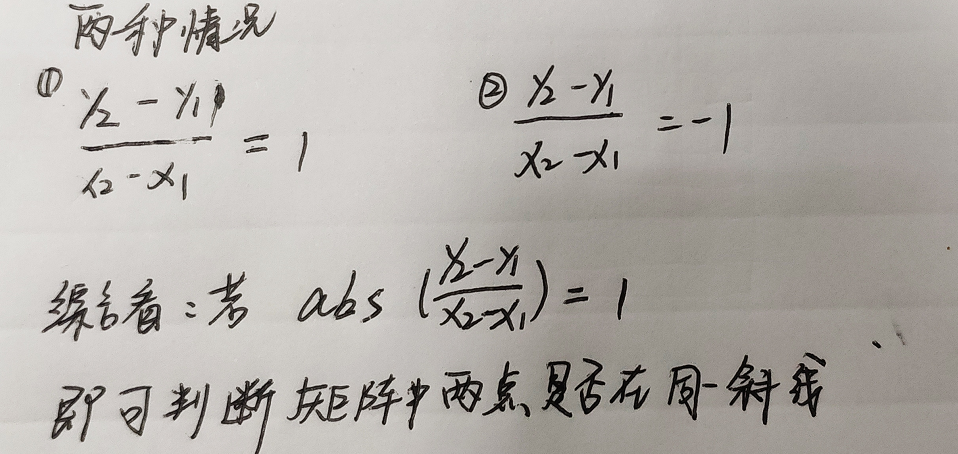 两种情况
① (y₂-y₁)/(x₂-x₁) = 1 ② (y₂-y₁)/(x₂-x₁) = -1
综合看:若 abs((y₂-y₁)/(x₂-x₁)) = 1
即可判断矩阵中两点是否在同一斜线